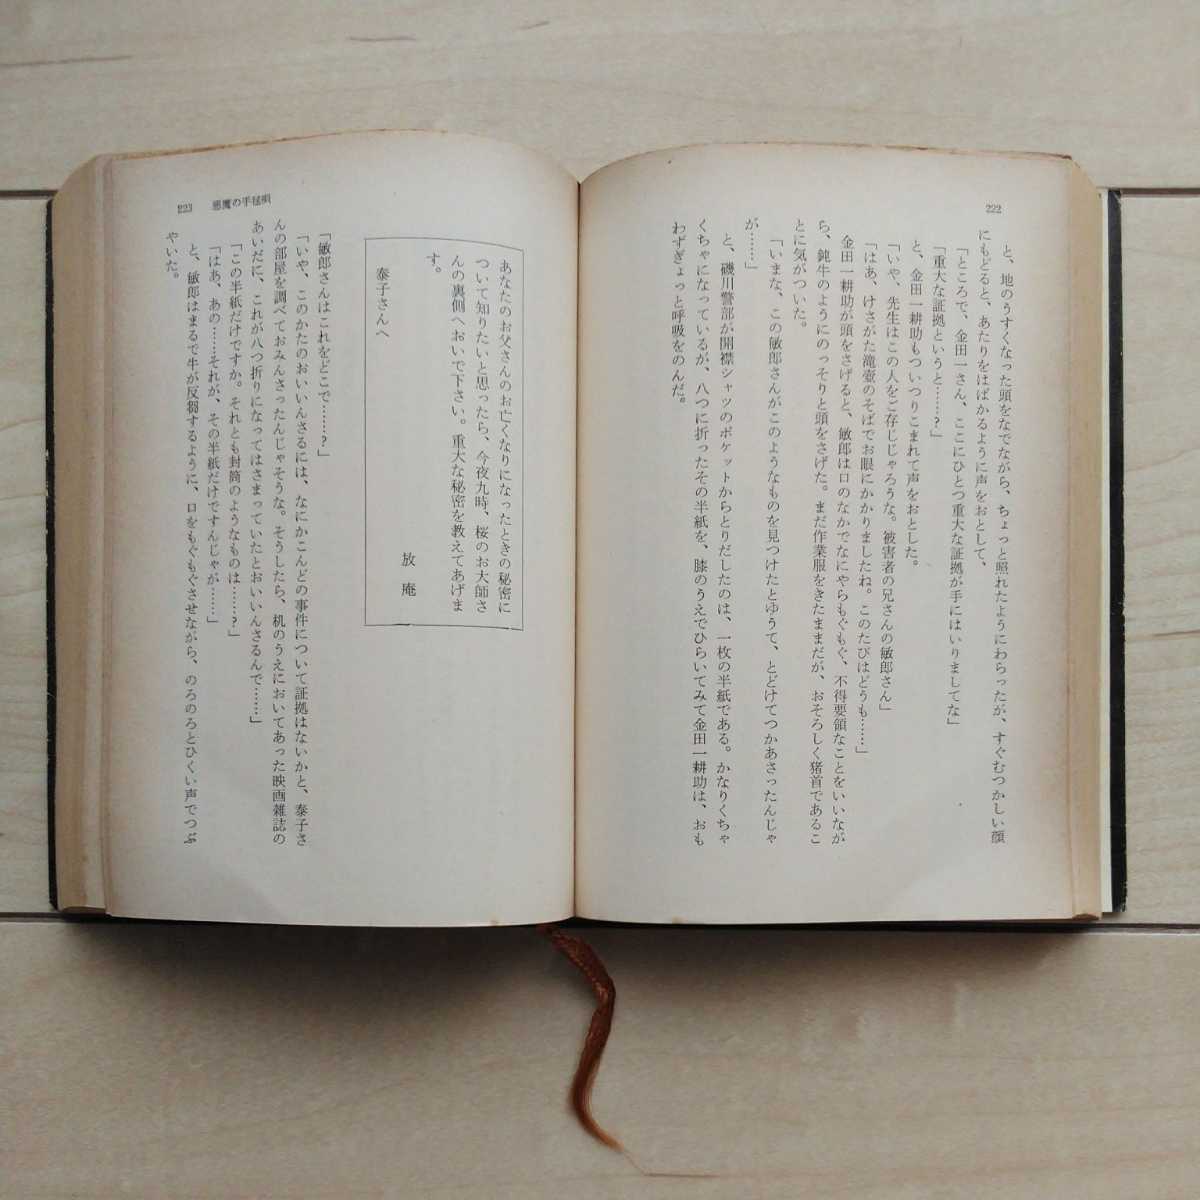 222
と、地のうすくなった頭をなでながら、ちょっと照れたようにわらったが、すぐむつかしい顔
にもどると、あたりをはばかるように声をおとして、
「ところで、金田一さん、ここにひとつ重大な証拠が手にはいりましてな」
「重大な証拠というと……?」
と、金田一耕助もついつりこまれて声をおとした。
「いや、先生はこの人をご存じじゃろうな。被害者の兄さんの敏郎さん」
「はあ、けさがた滝壺のそばでお眼にかかりましたね。このたびはどうも……」
金田一耕助が頭をさげると、敏郎は口のなかでなにやらもぐもぐ、不得要領なことをいいなが
ら、鈍牛のようにのっそりと頭をさげた。まだ作業服をきたままだが、おそろしく猪首であるこ
とに気がついた。
「いまな、この敏郎さんがこのようなものを見つけたとゆうて、とどけてつかあさったんじゃ
が……」
と、磯川警部が開襟シャツのポケットからとりだしたのは、一枚の半紙である。かなりくちゃ
くちゃになっているが、八つに折ったその半紙を、膝のうえでひらいてみて金田一耕助は、おも
わずぎょっと呼吸をのんだ。
223 悪魔の手毬唄
あなたのお父さんのお亡くなりになったときの秘密に
ついて知りたいと思ったら、今夜九時、桜のお大師さ
んの裏側へおいで下さい。重大な秘密を教えてあげま
す。
放庵
泰子さんへ
「敏郎さんはこれをどこで……?」
「いや、このかたのおいいんさるには、なにかこんどの事件について証拠はないかと、泰子さ
んの部屋を調べておみんさったんじゃそうな。そうしたら、机のうえにおいてあった映画雑誌の
あいだに、これが八つ折りになってはさまっていたとおいいんさるんで……」
「この半紙だけですか。それとも封筒のようなものは……?」
「はあ、あの……それが、その半紙だけですんじゃが……」
と、敏郎はまるで牛が反芻するように、口をもぐもぐさせながら、のろのろとひくい声でつぶ
やいた。